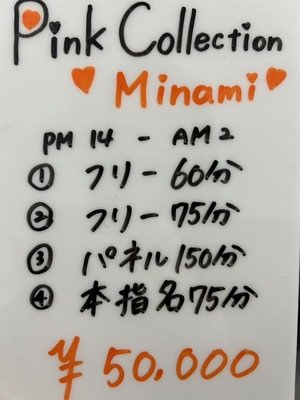 Pink Collection
Minami
PM 14 - AM2
① フリー 60分
② フリー 75分
③ パネル 150分
④ 本指名 75分
¥50,000